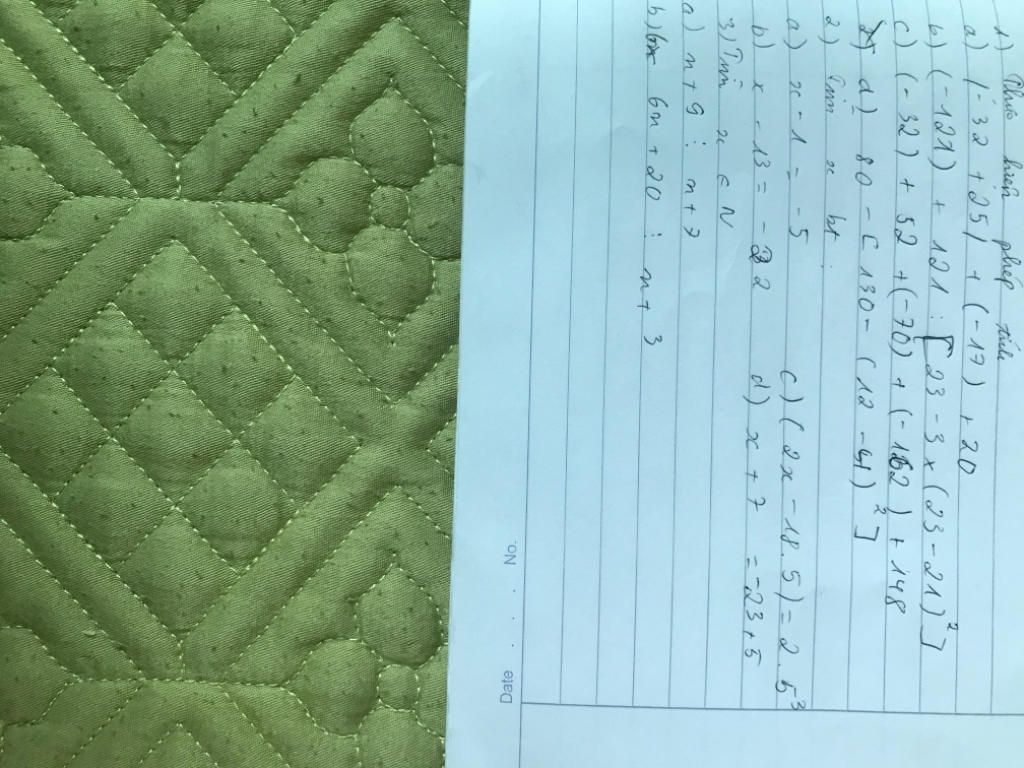 1) Thực hiện phép tính
a) |-32 + 25| + (-17) + 20
b) (-121) + 121 : [23 - 3 x (23 - 21)²]
c) (-32) + 52 + (-70) + (-162) + 148
d) 80 - [130 - (12 - 4)²]
2) Tìm x bt :
a) x - 1 = -5 c) (2x - 18.5) = 2.5³
b) x - 13 = -22 d) x + 7 = -23 + 5
3) Tìm x ∈ N
a) n + 9 ⋮ n + 7
b) 6n + 20 ⋮ n + 3
Date . . No.